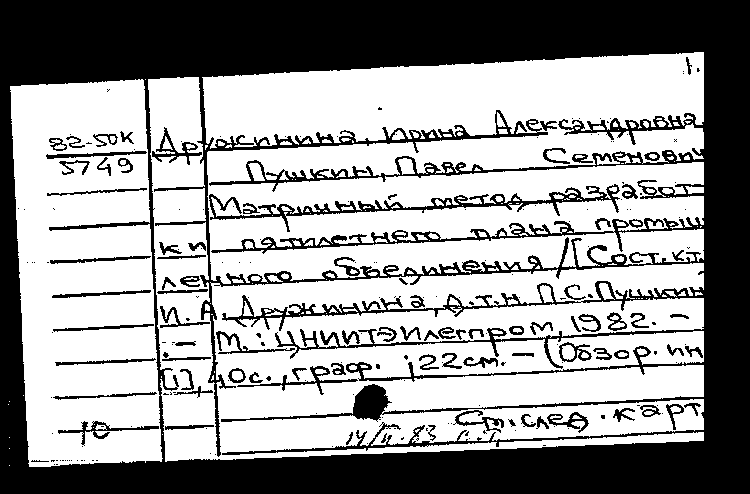 1.
82-50К Дружинина, Ирина Александровна,
5749 Пушкин, Павел Семенович
Матричный метод разработ-
ки пятилетнего плана промыш
ленного объединения /[Сост. к.т.
И. А. Дружинина, д.т.н. П.С. Пушкин
. - М.: ЦНИИТЭИлегпром, 1982. -
[1], 40с., граф. ; 22см. - (Обзор. ин
См. след. карт.
10